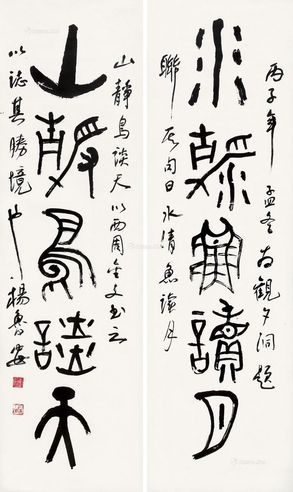 丙子年孟冬为觀夕洞題
水清魚讀月
聯句曰水清魚读月
山靜鸟谈天以西周金文书之
山靜鳥談天
以誌其勝境也楊魯安